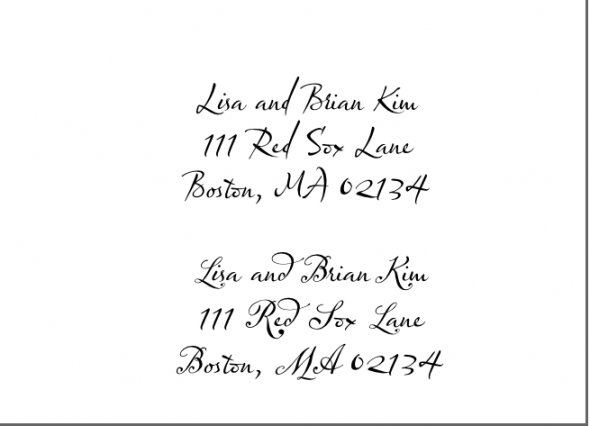 Lisa and Brian Kim
111 Red Sox Lane
Boston, MA 02134
Lisa and Brian Kim
111 Red Sox Lane
Boston, MA 02134